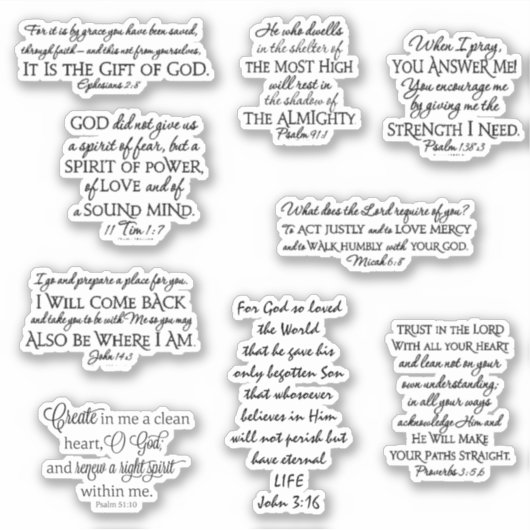 For it is by grace you have been saved,
through faith – and this not from yourselves,
IT IS THE GIFT OF GOD.
Ephesians 2:8
He who dwells
in the shelter of
THE MOST HIGH
will rest in
the shadow of
THE ALMIGHTY
Psalm 91:1
When I pray,
YOU ANSWER ME!
You encourage me
by giving me the
STRENGTH I NEED.
Psalm 138:3
GOD did not give us
a spirit of fear, but a
SPIRIT OF POWER,
of LOVE and of
a SOUND MIND.
11 Tim 1:7
What does the Lord require of you?
To ACT JUSTLY and to LOVE MERCY
and to WALK HUMBLY with YOUR GOD.
Micah 6:8
I go and prepare a place for you.
I WILL COME BACK
and take you to be with Me so you may
ALSO BE WHERE I AM.
John 14:3
For God so loved
the World
that he gave his
only begotten Son
that whosoever
believes in Him
will not perish but
have eternal
LIFE
John 3:16
TRUST IN THE LORD
WITH ALL YOUR HEART
and lean not on your
own understanding;
in all your ways
acknowledge Him and
HE WILL MAKE
YOUR PATHS STRAIGHT.
Proverbs 3:5,6
Create in me a clean
heart, O God,
and renew a right spirit
within me.
Psalm 51:10